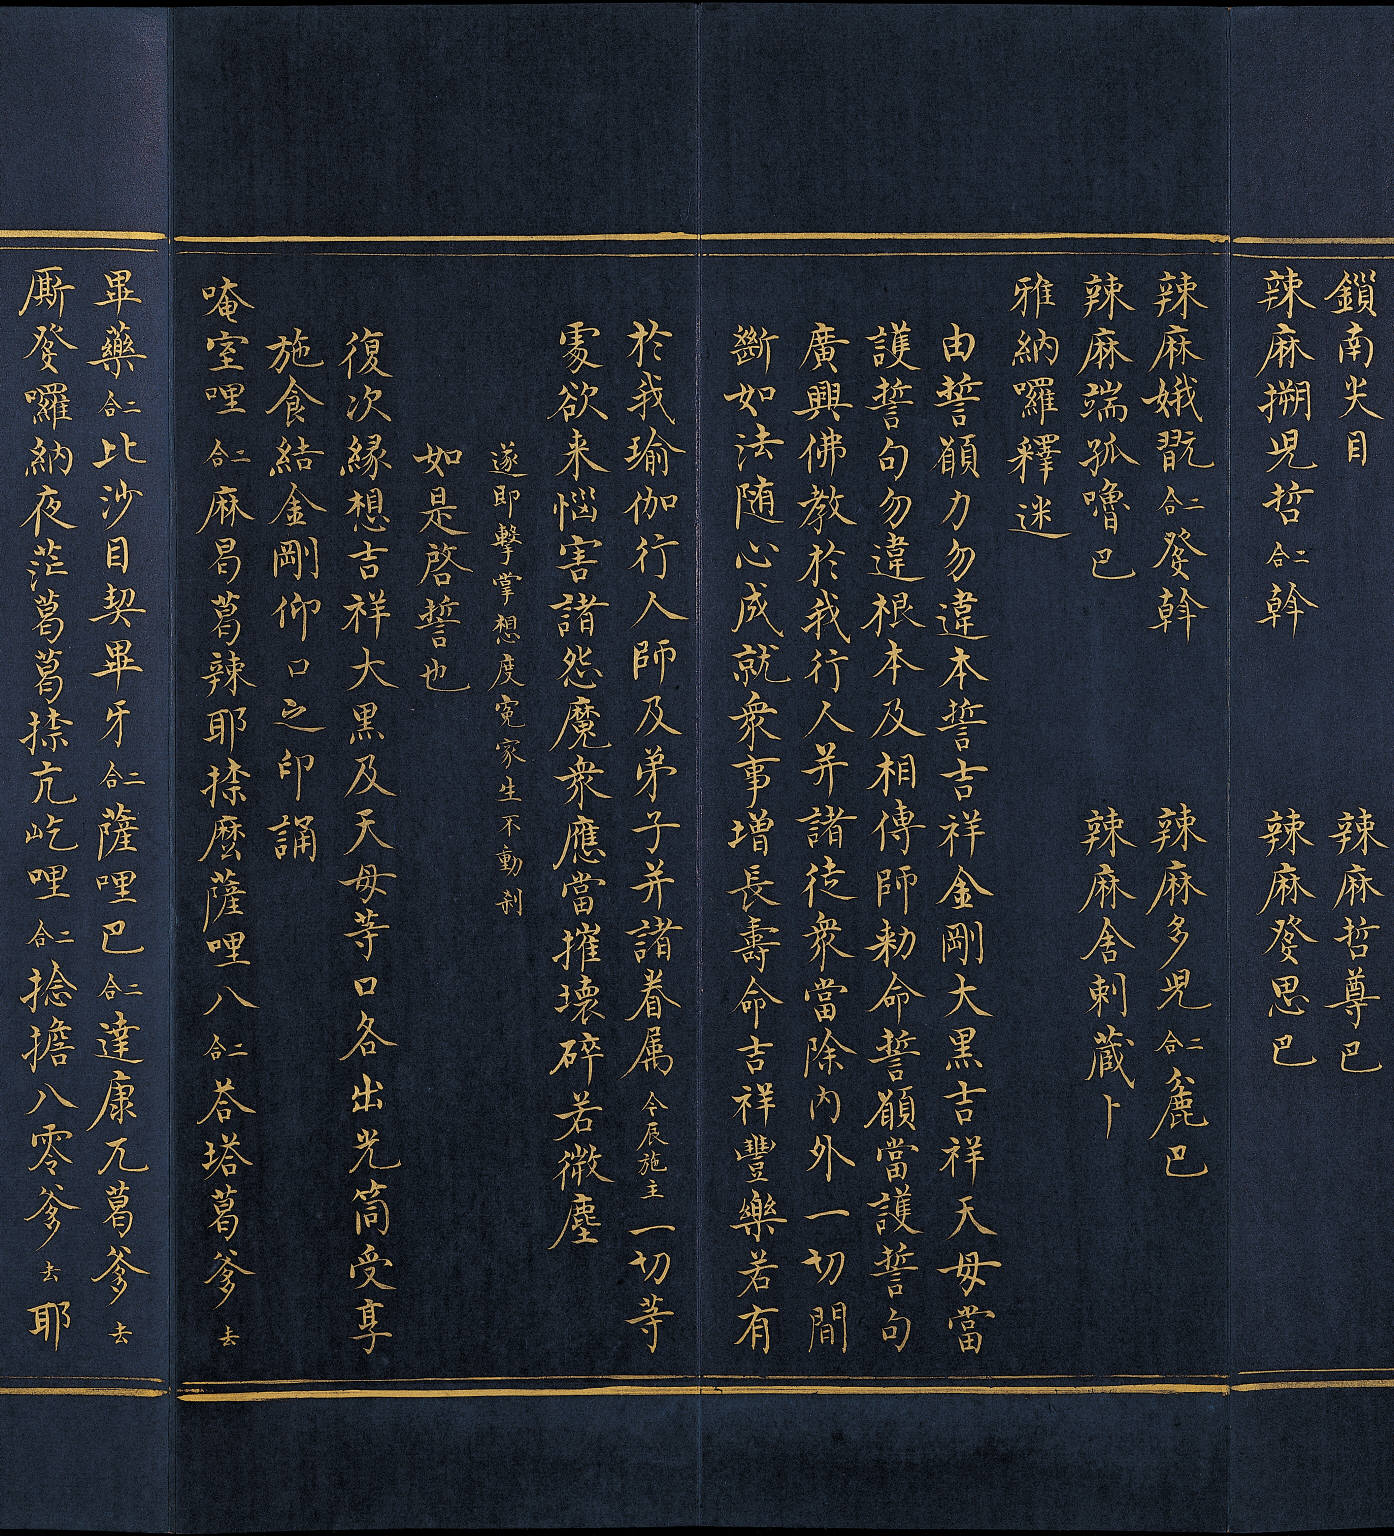 鎖南尖目　辢麻哲尊巴
辢麻搠児哲二合斡　辢麻發思巴
辢麻娥翫二合發斡　辢麻多児二合麁巴
辢麻端孤嚕巴　辢麻舍剌藏卜
雅納囉釋迷
由誓願力勿違本誓吉祥金剛大黒吉祥天母當
護誓句勿違根本及相傳師勑命誓願當護誓句
廣興佛教於我行人并諸徒衆當除内外一切間
斷如法随心成就衆事增長壽命吉祥豐樂若有
於我瑜伽行人師及弟子并諸眷属今辰施主一切等
䖏欲来惱害諸怨魔衆應當摧壞碎若微塵
遂即擊掌想度寃家生不動刹
如是啓誓也
復次緣想吉祥大黒及天母等口各出光筒受享
施食結金剛仰口之印誦
唵室哩二合麻曷葛辢耶捺麽薩哩八二合荅塔葛爹去
畢藥二合比沙目契畢牙二合薩哩巴二合達康兀葛爹去
厮發囉納夜茫葛葛捺亢屹哩二合捻擔八零爹去耶